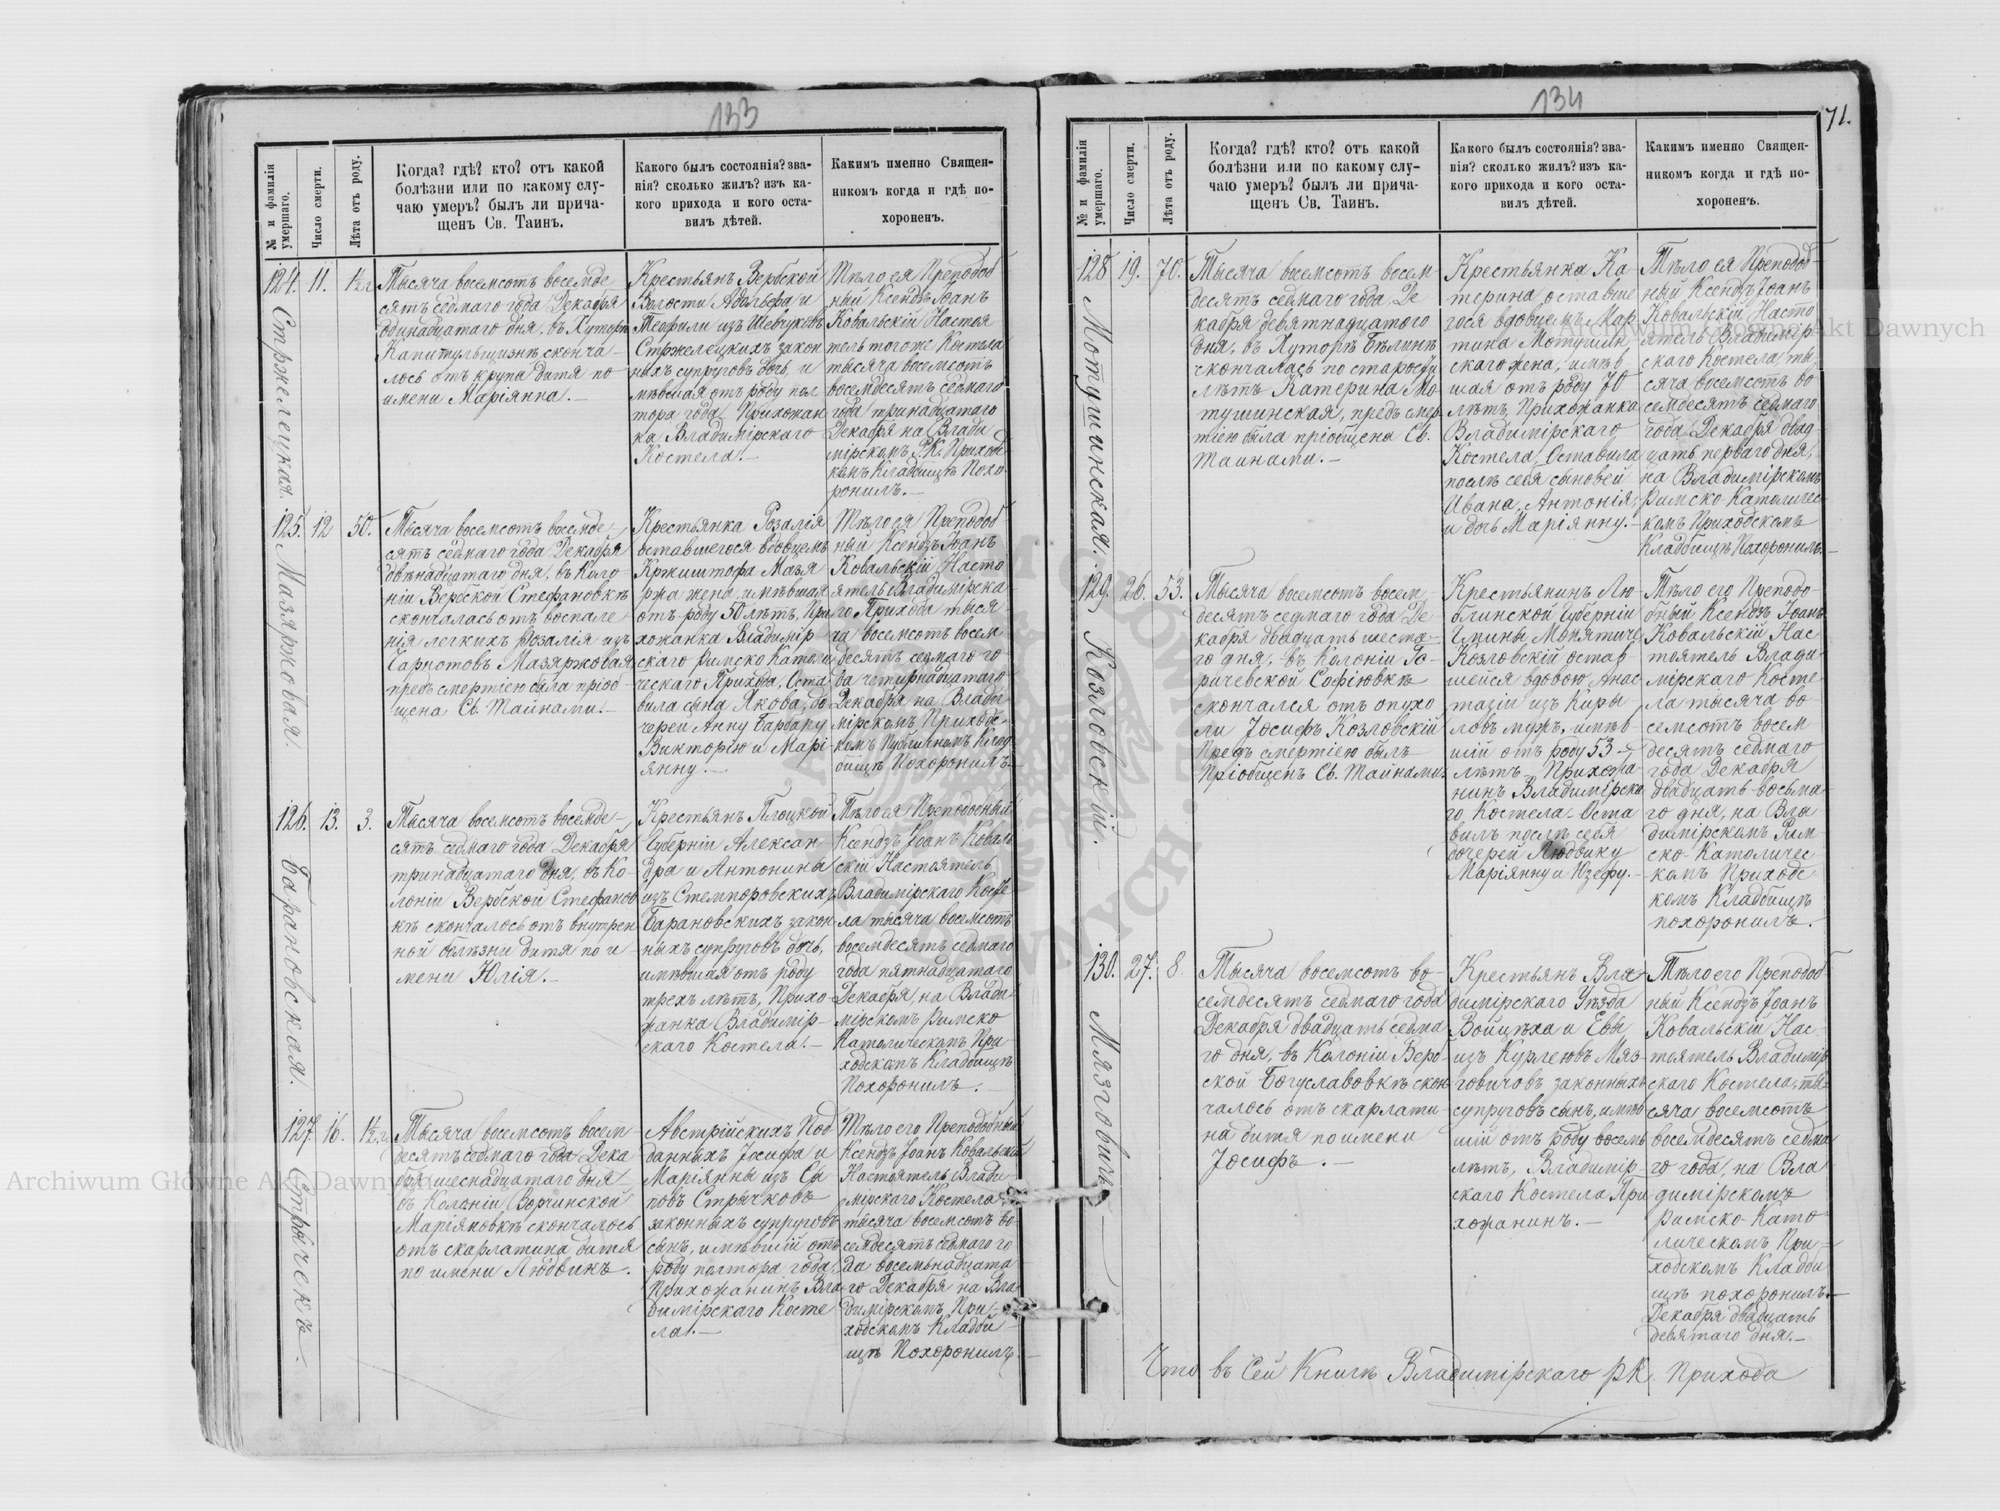 133
№ и фамилія умершаго.
Число смерти.
Лѣта отъ роду.
Когда? гдѣ? кто? отъ какой
болѣзни или по какому слу-
чаю умеръ? былъ ли прича-
щенъ Св. Таинъ.
Какого былъ состоянія? зва-
нія? сколько жилъ? изъ ка-
кого прихода и кого оста-
вилъ дѣтей.
Какимъ именно Священ-
никомъ когда и гдѣ по-
хороненъ.
124. 11. 1½ г
Стржелецкая.
Тысяча восемсотъ восемде
сятъ седмаго года Декабря
одинадцатаго дня, въ Хуторѣ
Капитульщизнѣ сконча-
лось отъ крупа дитя по
имени Маріянна.-
Крестьянъ Вербской
Волости Адольфа и
Теофили изъ Шевчуковъ
Стржелецкихъ закон
ныхъ супруговъ дочь, и
мѣвшая отъ роду пол
тора года, Прихожан
ка Владимірскаго
Костела.-
Тѣло ея Преподоб
ный Ксендзъ Іоанъ
Ковальскій Настоя
тель тогоже Костела
тысяча восемсотъ
восемдесятъ седмаго
года тринадцатаго
Декабря на Влади
мірскомъ Р.К. Приход
комъ Кладбищѣ Похо-
ронилъ.-
125. 12 50.
Мазяржовая.
Тысяча восемсотъ восемде-
сятъ седмаго года Декабря
двѣнадцатаго дня, въ Коло-
ніи Вербской Стефановкѣ
скончалась отъ воспале-
нія легкихъ Розалія изъ
Чарнотовъ Мазяржовая
предъ смертіею была пріоб-
щена Св. Тайнами.-
Крестьянка Розалія
оставшегося вдовцемъ
Кржиштофа Мазя
ржа жена, имѣвшая
отъ роду 50 лѣтъ, При
хожанка Владимір-
скаго Римско Католи
ческаго Прихода, Оста
вила сына Якова, до
черей Анну Барбару
Викторію и Марі-
янну.-
Тѣло ея Преподоб
ный Ксендзъ Іоанъ
Ковальскій Насто
ятель Владимірска
го Прихода тыся
ча восемсотъ восем
десятъ седмаго го
да четырнадцатаго
Декабря на Влади
мірскомъ Приходс-
комъ Публичномъ Клад
бищѣ Похоронилъ.-
126. 13. 3.
Барановская.
Тысяча восемсотъ восемде-
сятъ седмаго года Декабря
тринадцатаго дня, въ Ко-
лоніи Вербской Стефанов
кѣ скончалось отъ внутрен
ной болѣзни дитя по и
мени Юлія.-
Крестьянъ Плоцкой
Губерніи Алексан
дра и Антонины
изъ Стемпоровскихъ
Барановскихъ закон-
ныхъ супруговъ дочь,
имѣвшая отъ роду
трехъ лѣтъ, Прихо-
жанка Владимір-
скаго Костела.-
Тѣло ея Преподобный
Ксендзъ Іоанъ Коваль
скій Настоятель
Владимірскаго Косте
ла тысяча восемсотъ
восемдесятъ седмаго
года пятнадцатаго
Декабря, на Влади-
мірскомъ Римско
Католическомъ При-
ходскомъ Кладбищѣ
Похоронилъ.-
127 16. 1½ г.
Стрычекъ.
Тысяча восемсотъ восем
десятъ седмаго года Дека-
бря шеснадцатаго дня
въ Колоніи Ворчинской
Маріяновкѣ скончалось
отъ скарлатина дитя
по имени Людвикъ.
Австрійскихъ Под
данныхъ Іосифа и
Маріянны изъ Сы
повъ Стрычковъ
законныхъ супруговъ
сынъ, имѣвшій отъ
роду полтора года,
Прихожанинъ Вла
димірскаго Косте
ла.-
Тѣло его Преподобный
Ксендзъ Іоанъ Ковальскій
Настоятель Влади
мірскаго Костела
тысяча восемсотъ во-
семдесятъ седмаго го
да восемьнадцата-
го Декабря на Вла-
димірскомъ При-
ходскомъ Кладби-
щѣ Похоронилъ.-
134
71.
№ и фамилія умершаго.
Число смерти.
Лѣта отъ роду.
Когда? гдѣ? кто? отъ какой
болѣзни или по какому слу-
чаю умеръ? былъ ли прича-
щенъ Св. Таинъ.
Какого былъ состоянія? зва-
нія? сколько жилъ? изъ ка-
кого прихода и кого оста-
вилъ дѣтей.
Какимъ именно Священ-
никомъ когда и гдѣ по-
хороненъ.
128 19. 70.
Мотушинская.
Тысяча восемсотъ восем-
десятъ седмаго года Де
кабря девятнадцатого
дня, въ Хуторѣ Бѣлинѣ
скончалась по старости
лѣтъ Катерина Мо
тушинская, предъ смер
тіею была пріобщена Св.
Тайнами.-
Крестьянка Ка
терина оставше
гося вдовцемъ Мар
тина Мотушин
скаго жена, имѣв
шая отъ роду 70
лѣтъ, Прихожанка
Владимірскаго
Костела, Оставила
послѣ себя сыновей
Ивана, Антонія,
и дочь Маріянну.-
Тѣло ея Преподоб-
ный Ксендзъ Іоанъ
Ковальскій Насто
ятель Владимір-
скаго Костела ты-
сяча восемсотъ во
семдесятъ седмаго
года Декабря двад-
цать перваго дня,
на Владимірскомъ
Римско-Католичес-
комъ Приходскомъ
Кладбищѣ Похоронилъ.-
129. 26. 53.
Козловскій.
Тысяча восемсотъ восем
десятъ седмаго года Де
кабря двадцать шеста-
го дня, въ Колоніи Го-
ричевской Софіювкѣ
скончался отъ опухо
ли Іосифъ Козловскій
Предъ смертіею былъ
Пріобщенъ Св. Тайнами.
Крестьянинъ Лю
блинской Губерніи
Гмины Монятиче
Козловскій остав-
шейся вдовою Анас
тазіи изъ Киры
ловъ мужъ, имѣв
шій отъ роду 53-
лѣтъ, Прихожа-
нинъ Владимірска
го Костела. Оста
вилъ послѣ себя
дочерей Людвику
Маріянну и Юзефу.-
Тѣло его Преподо-
бный Ксендзъ Іоанъ
Ковальскій Нас-
тоятель Влади-
мірскаго Косте
ла тысяча во
семсотъ восем
десятъ седмаго
года Декабря
двадцать восьма-
го дня, на Вла
димірскомъ Рим-
ско-Католичес
комъ Приходс
комъ Кладбищѣ
похоронилъ.
130. 27. 8
Мязговичъ
Тысяча восемсотъ во-
семдесятъ седмаго года
Декабря двадцать седма
го дня, въ Колоніи Верб-
ской Богуславовкѣ скон
чалось отъ скарлати-
на дитя по имени
Іосифъ.-
Крестьянъ Вла-
димірскаго Уѣзда
Войцѣха и Евы
изъ Курлеювъ Мяз-
говичовъ законныхъ
супруговъ сынъ, имѣв
шій отъ роду восемь
лѣтъ, Владимір-
скаго Костела При
хожанинъ.-
Тѣло его Преподоб
ный Ксендзъ Іоанъ
Ковальскій Нас-
тоятель Владимір
скаго Костела, ты-
сяча восемсотъ
восемдесятъ седма
го года, на Вла-
димірскомъ
Римско-Като-
лическомъ При-
ходскомъ Кладби
щѣ похоронилъ.-
Декабря двадцать
девятаго дня.-
Что въ Сей Книгѣ Владимірскаго РК. Прихода
Archiwum Główne Akt Dawnych
Archiwum Główne Akt Dawnych